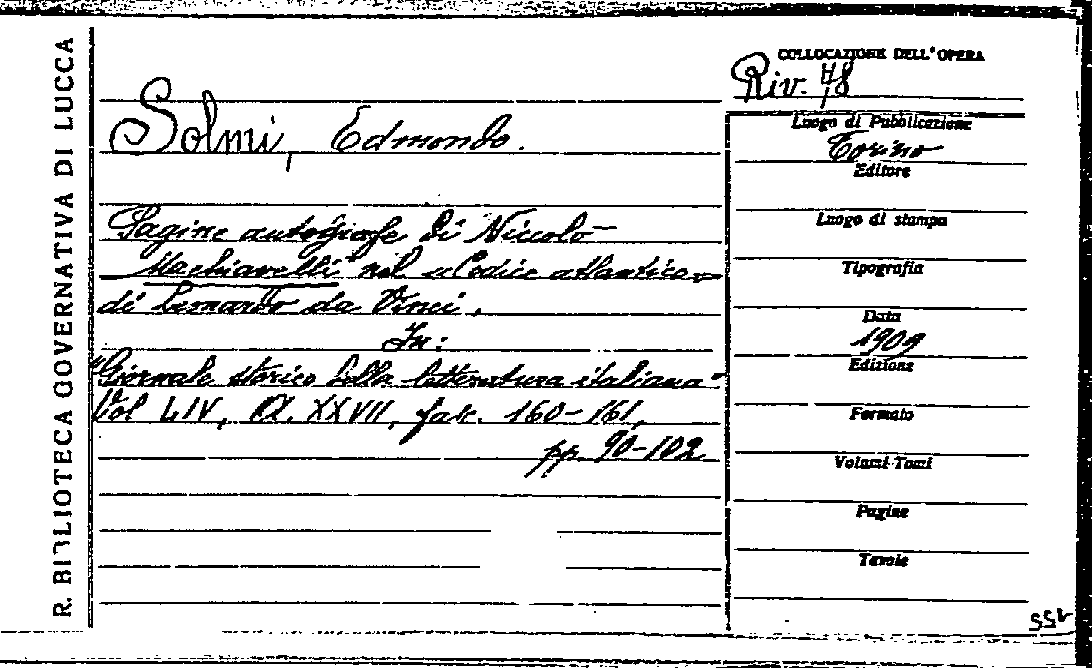 R. BIBLIOTECA GOVERNATIVA DI LUCCA
COLLOCAZIONE DELL'OPERA
Riv. 78
Solmi, Edmondo.
Pagine autografe di Niccolò
Machiavelli nel "Codice atlantico"
di Leonardo da Vinci.
In:
"Giornale storico della letteratura italiana"
Vol LIV, A. XXVII, fasc. 160-161,
pp. 90-102
Luogo di Pubblicazione
Torino
Editore
Luogo di stampa
Tipografia
Data
1909
Edizione
Formato
Volumi-Tomi
Pagine
Tavole